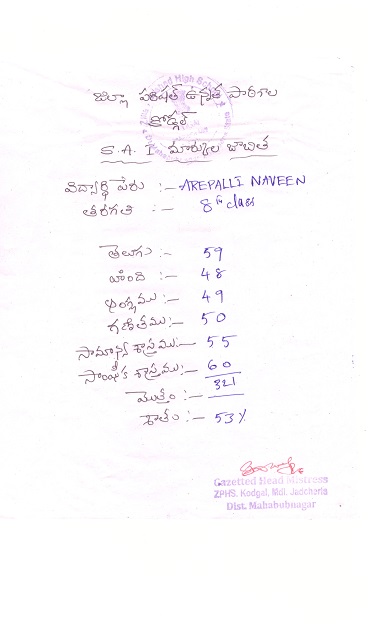 జిల్లా పరిషత్ ఉన్నత పాఠశాల
కోడ్గల్
S.A. I మార్కుల జాబితా
విద్యార్థి పేరు :- AREPALLI NAVEEN
తరగతి :- 8th class
తెలుగు :- 59
హింది :- 48
ఆంగ్లము :- 49
గణితము :- 50
సామాన్య శాస్త్రము :- 55
సాంఘీక శాస్త్రము :- 60
మొత్తం :- 321
శాతం :- 53%
Gazetted Head Mistress
ZPHS. Kodgal, Mdl. Jadcherla
Dist. Mahabubnagar